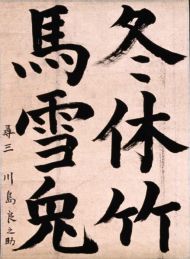 冬休竹
馬雪兎
尋三 川島良之助